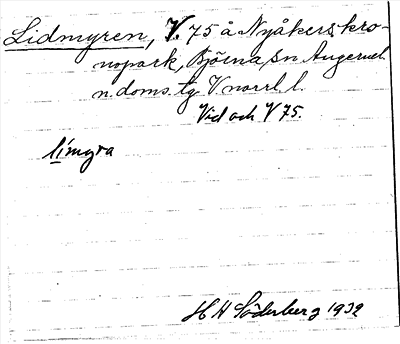 Lidmyren, V. 75 å Nyåkers kro-
nopark, Björna sn Ångermel.
n. doms. tg V norrl. l.
Vid och V 75.
límyra
H H Söderberg 1932